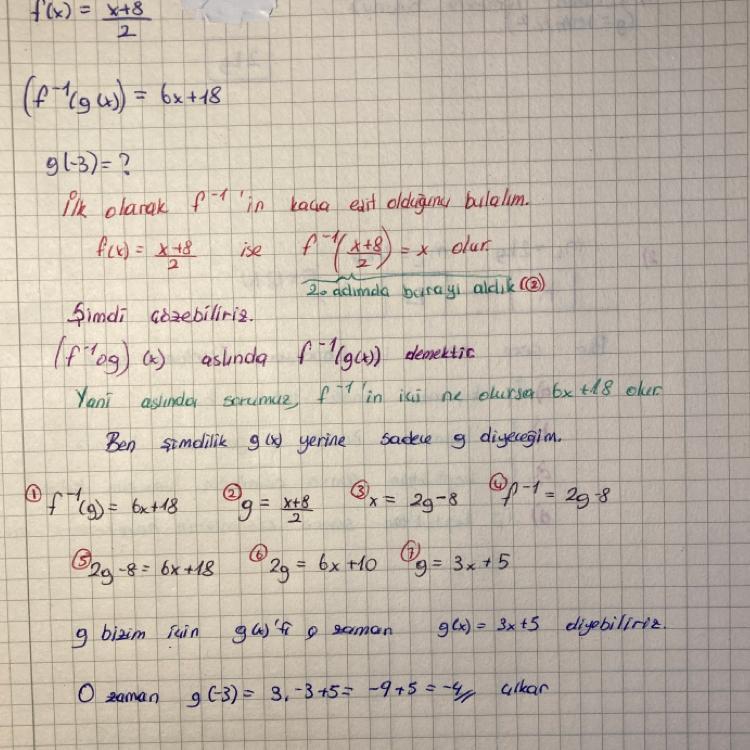 f(x) = x+8/2
(f⁻¹(g(x)) = 6x+18
g(-3) = ?
İlk olarak f⁻¹'in kaça eşit olduğunu bulalım.
f(x) = x+8/2 ise f⁻¹(x+8/2) = x olur.
2. adımda burayı aldık (②)
Şimdi çözebiliriz.
(f⁻¹og) (x) aslında f⁻¹(g(x)) demektir.
Yani aslında sorumuz, f⁻¹'in içi ne olursa 6x+18 olur.
Ben şimdilik g(x) yerine sadece g diyeceğim.
① f⁻¹(g) = 6x+18 ② g = x+8/2 ③ x = 2g-8 ④ f⁻¹ = 2g-8
⑤ 2g-8 = 6x+18 ⑥ 2g = 6x+10 ⑦ g = 3x+5
g bizim için g(x)'ti o zaman g(x) = 3x+5 diyebiliriz.
O zaman g(-3) = 3.-3+5 = -9+5 = -4// çıkar